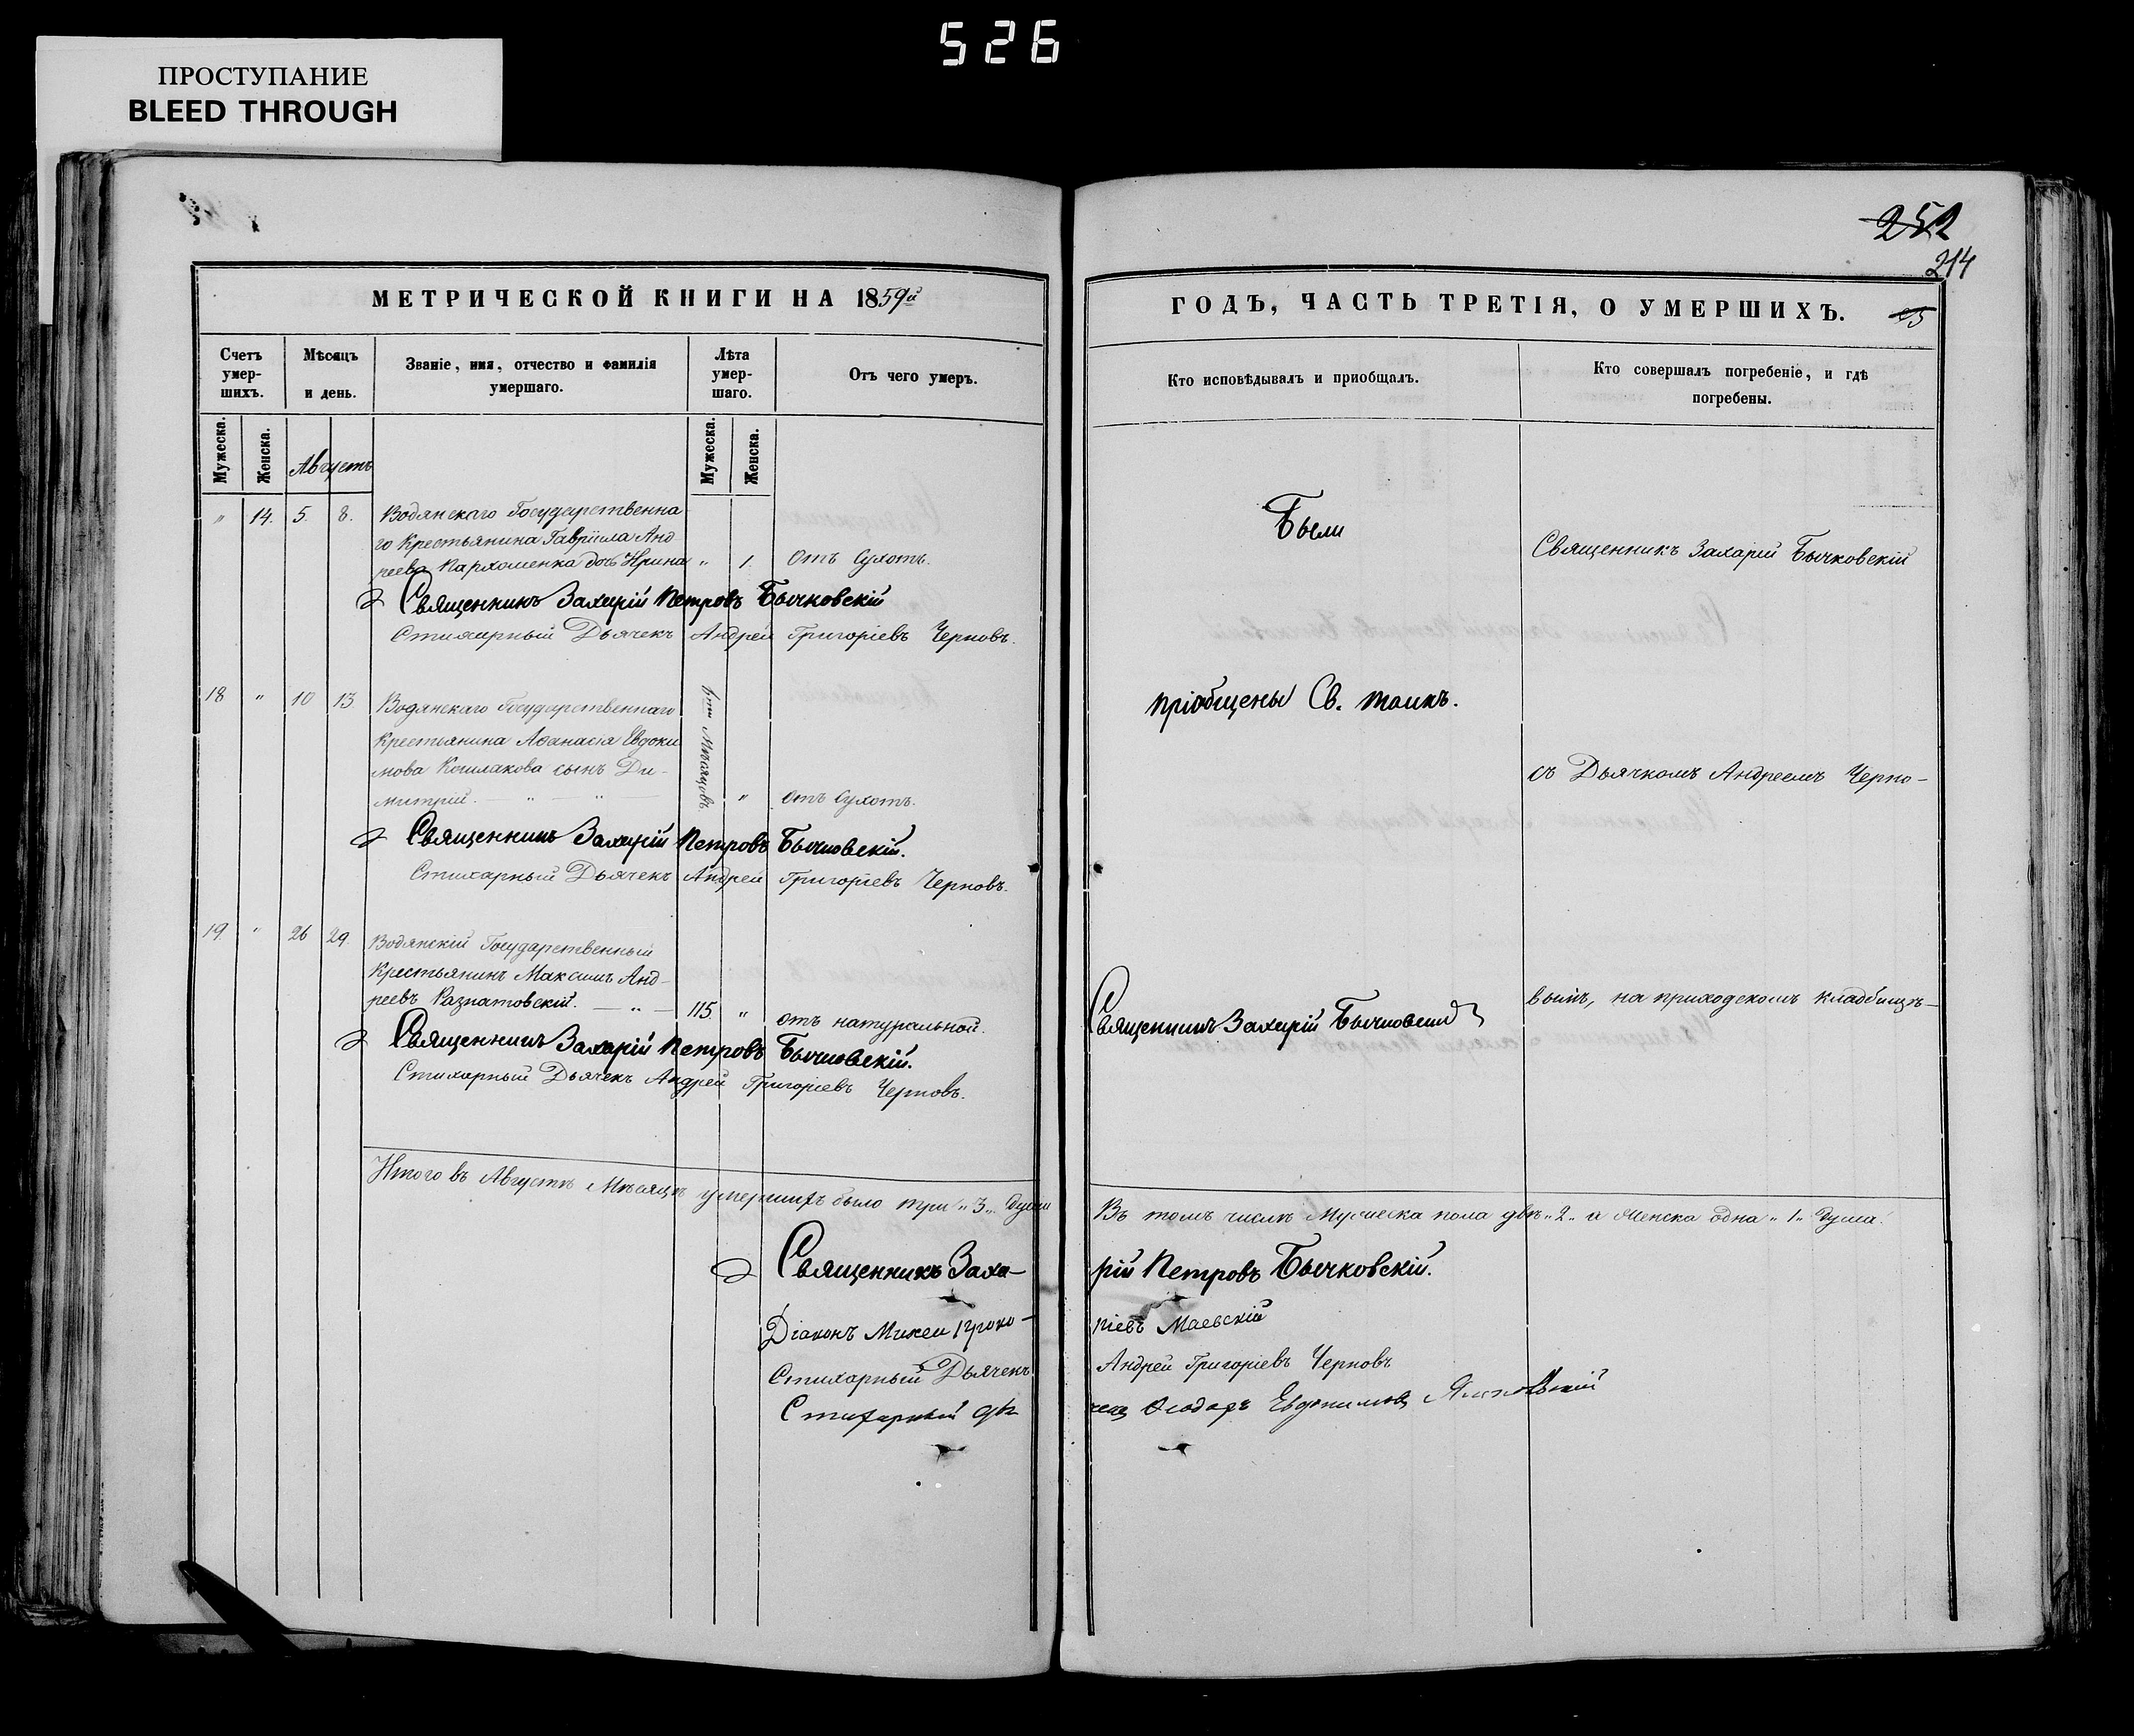 526
ПРОСТУПАНИЕ
BLEED THROUGH
252
214
МЕТРИЧЕСКОЙ КНИГИ НА 1859й
Счетъ умер-шихъ.
Мѣсяцъ и день.
Званіе, имя, отчество и фамилія умершаго.
Лѣта умер-шаго.
Отъ чего умеръ.
Мужеска.
Женска.
Августъ
Мужеска.
Женска.
" 14. 5. 8. Водянскаго Государственна
го Крестьянина Гавріила Анд
реева Пархоменка дочь Ирина " 1. Отъ Сухотъ.
Священникъ Захарій Петровъ Бычковскій
Стихарный Дьячекъ Андрей Григоріевъ Черновъ.
18 " 10 13 Водянскаго Государственнаго
Крестьянина Афанасія Евдоки
мова сынъ Ди-
митрій. — " — " — Мѣсяцовъ " Отъ Сухотъ.
Священникъ Захарій Петровъ Бычковскій.
Стихарный Дьячекъ Андрей Григоріевъ Черновъ.
19. " 26 29 Водянскій Государственный
Крестьянинъ Максимъ Анд-
реевъ Разнатовскій. — " — 115. " отъ натуральной.
Священникъ Захарій Петровъ Бычковскій.
Стихарный Дьячекъ Андрей Григоріевъ Черновъ.
Итого въ Августѣ Мѣсяцѣ умершихъ было три "3" души
Священникъ Заха-
Діаконъ Михей Проко-
Стихарный Дьячекъ
Стихарный дья
ГОДЪ, ЧАСТЬ ТРЕТІЯ, О УМЕРШИХЪ.
Кто исповѣдывалъ и приобщалъ.
Кто совершалъ погребеніе, и гдѣ погребены.
Были
Священникъ Захарій Бычковскій
пріобщены Св. таинъ.
съ Дьячкомъ Андреемъ Черно-
Священникъ Захарій Бычковскій
вымъ, на приходскомъ кладбищѣ—
Въ томъ числѣ Мужеска пола двѣ "2" и Женска одна "1" душа.
рій Петровъ Бычковскій.
піевъ Маевскій
Андрей Григоріевъ Черновъ
чекъ Ѳеодоръ Евдокимовъ